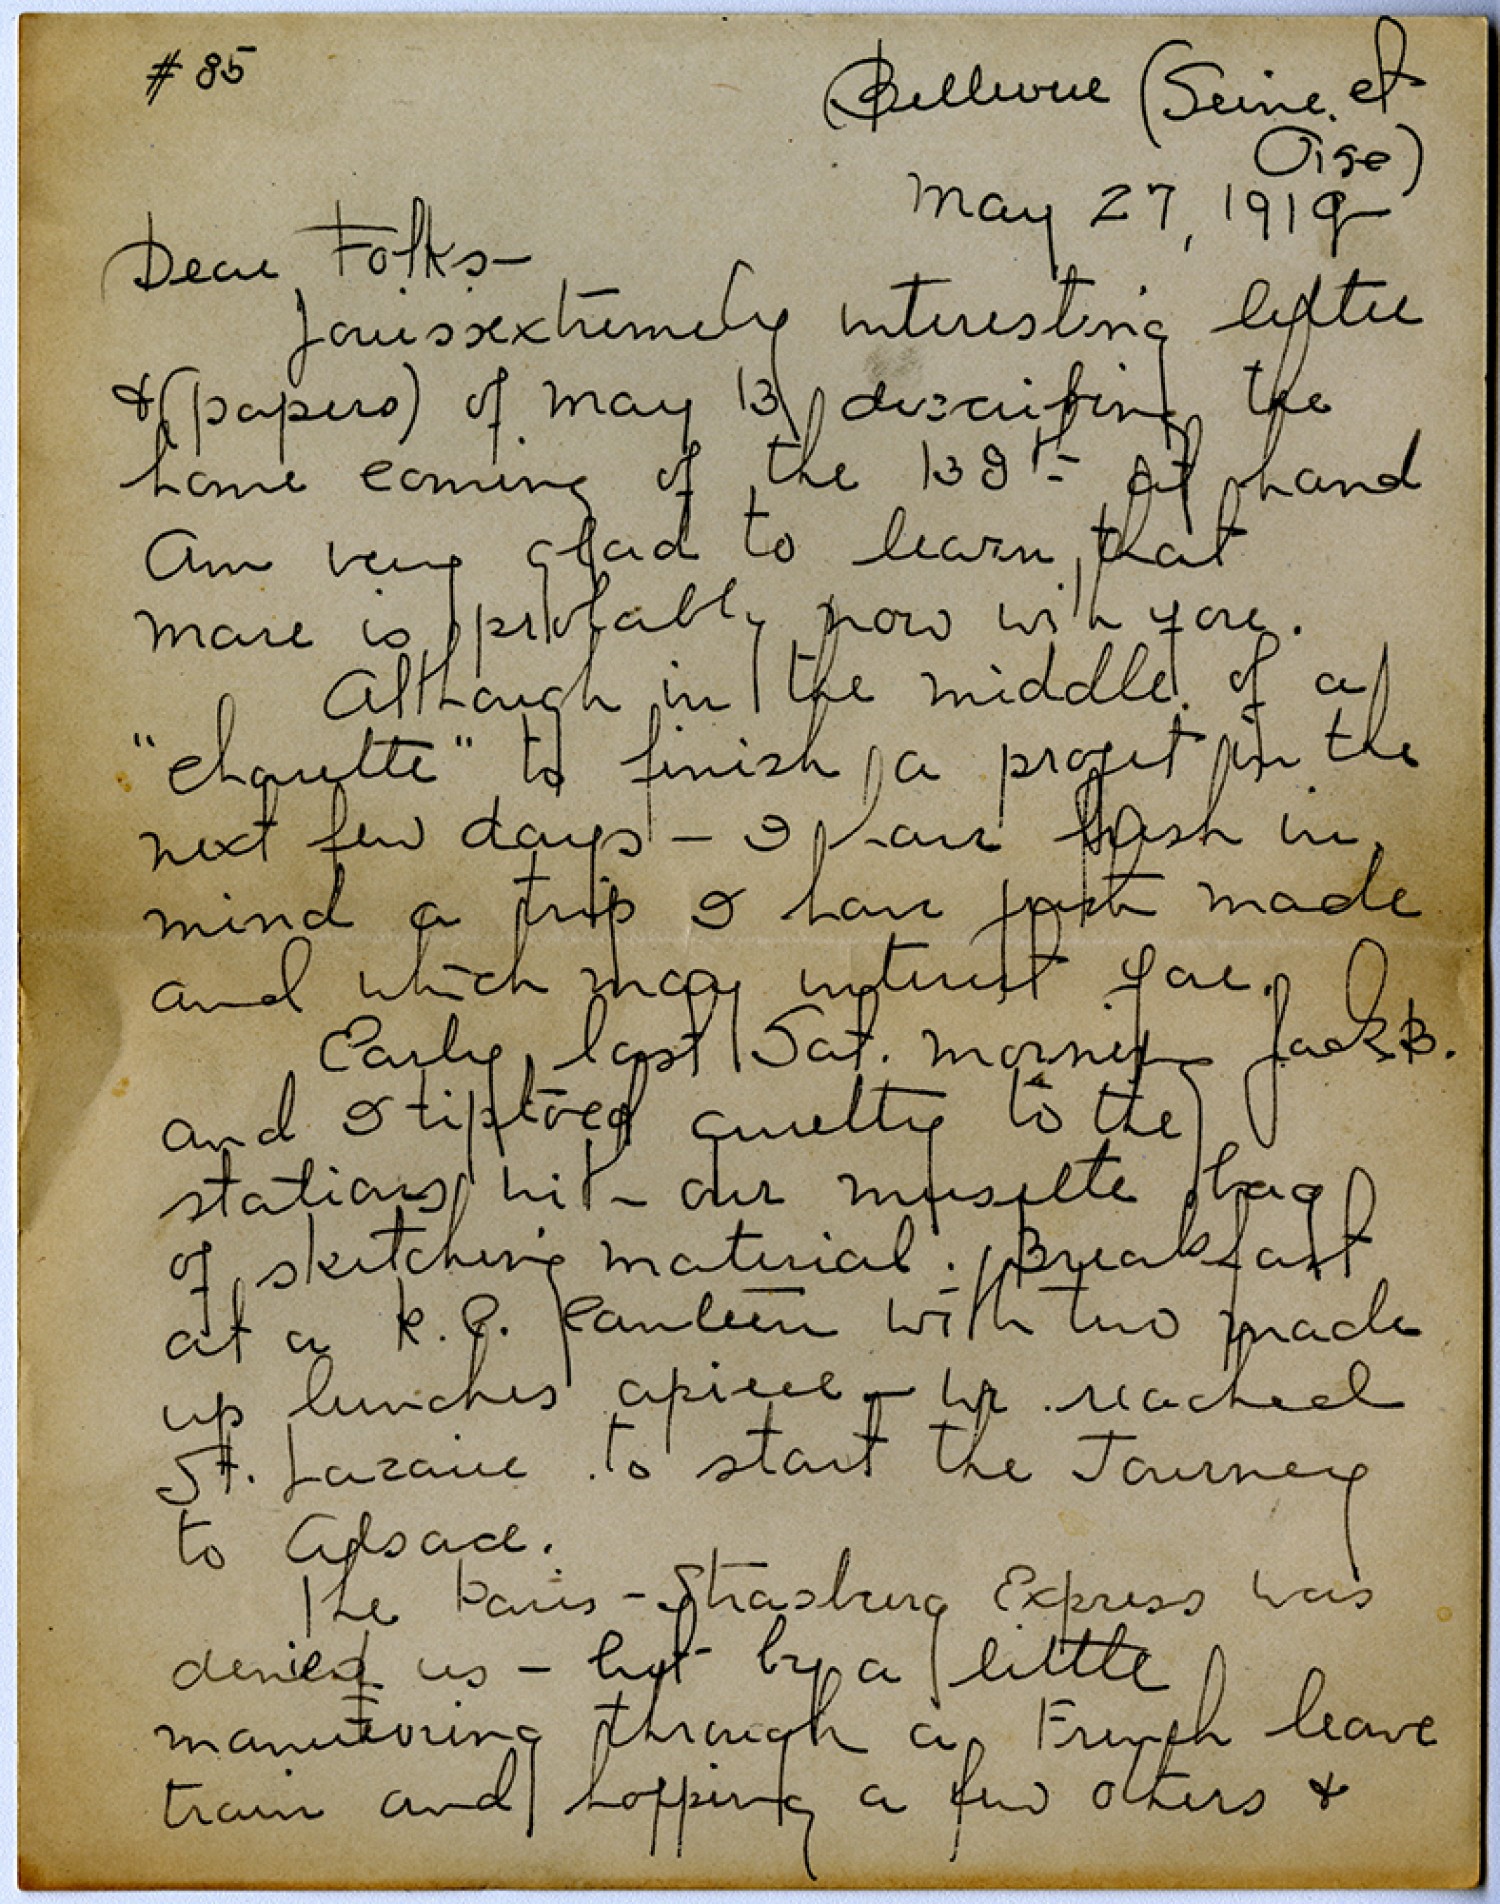 # 85
Bellevue (Seine et
Oise)
May 27, 1919
Dear Folks—
Louis's extremely interesting letter
& (papers) of May 13 describing the
home coming of the 138th at hand
Am very glad to learn that
is probably now with you.
Although in the middle of a
"charette" to finish a projet in the
next few days — I have fresh in
mind a trip I have just made
and which may interest you.
Early last Sat. morning Jack B.
and I tiptoed quietly to the
station with our musette bag
of sketching material. Breakfast
at a R.C. canteen with two made
up lunches apiece — we reached
St. Lazaire to start the Journey
to Alsace.
The Paris – Strasburg Express was
denied us – but by a little
through a French leave
train and hopping a few others &